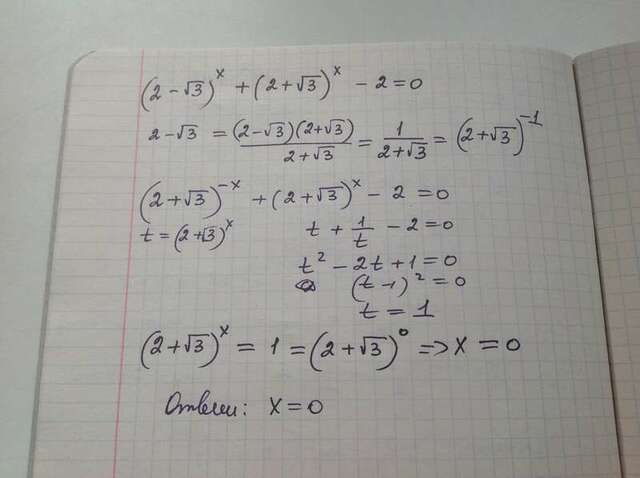 (2-√3)^x + (2+√3)^x - 2 = 0
2-√3 = (2-√3)(2+√3)/(2+√3) = 1/(2+√3) = (2+√3)^-1
(2+√3)^-x + (2+√3)^x - 2 = 0
t = (2+√3)^x t + 1/t - 2 = 0
t² - 2t + 1 = 0
(t-1)² = 0
t = 1
(2+√3)^x = 1 = (2+√3)^0 => x = 0
Ответ: x = 0